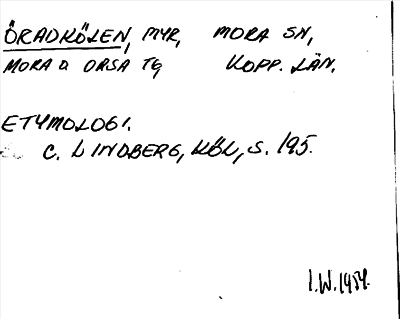 ÖRADKÖLEN, MYR, MORA SN,
MORA O ORSA TG KOPP. LÄN.
ETYMOLOGI.
C. LINDBERG, KÖL, S. 195.
I.W. 1954.